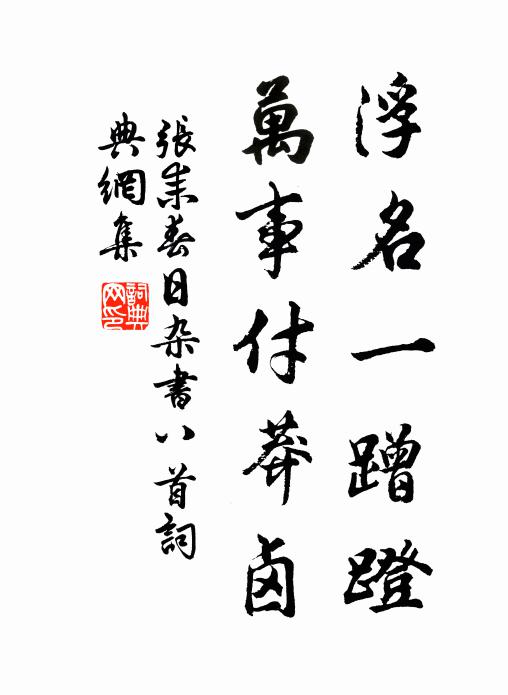 浮名一蹭蹬
萬事付莽鹵
張耒春日杂書八首詞
典網集
詞典网印